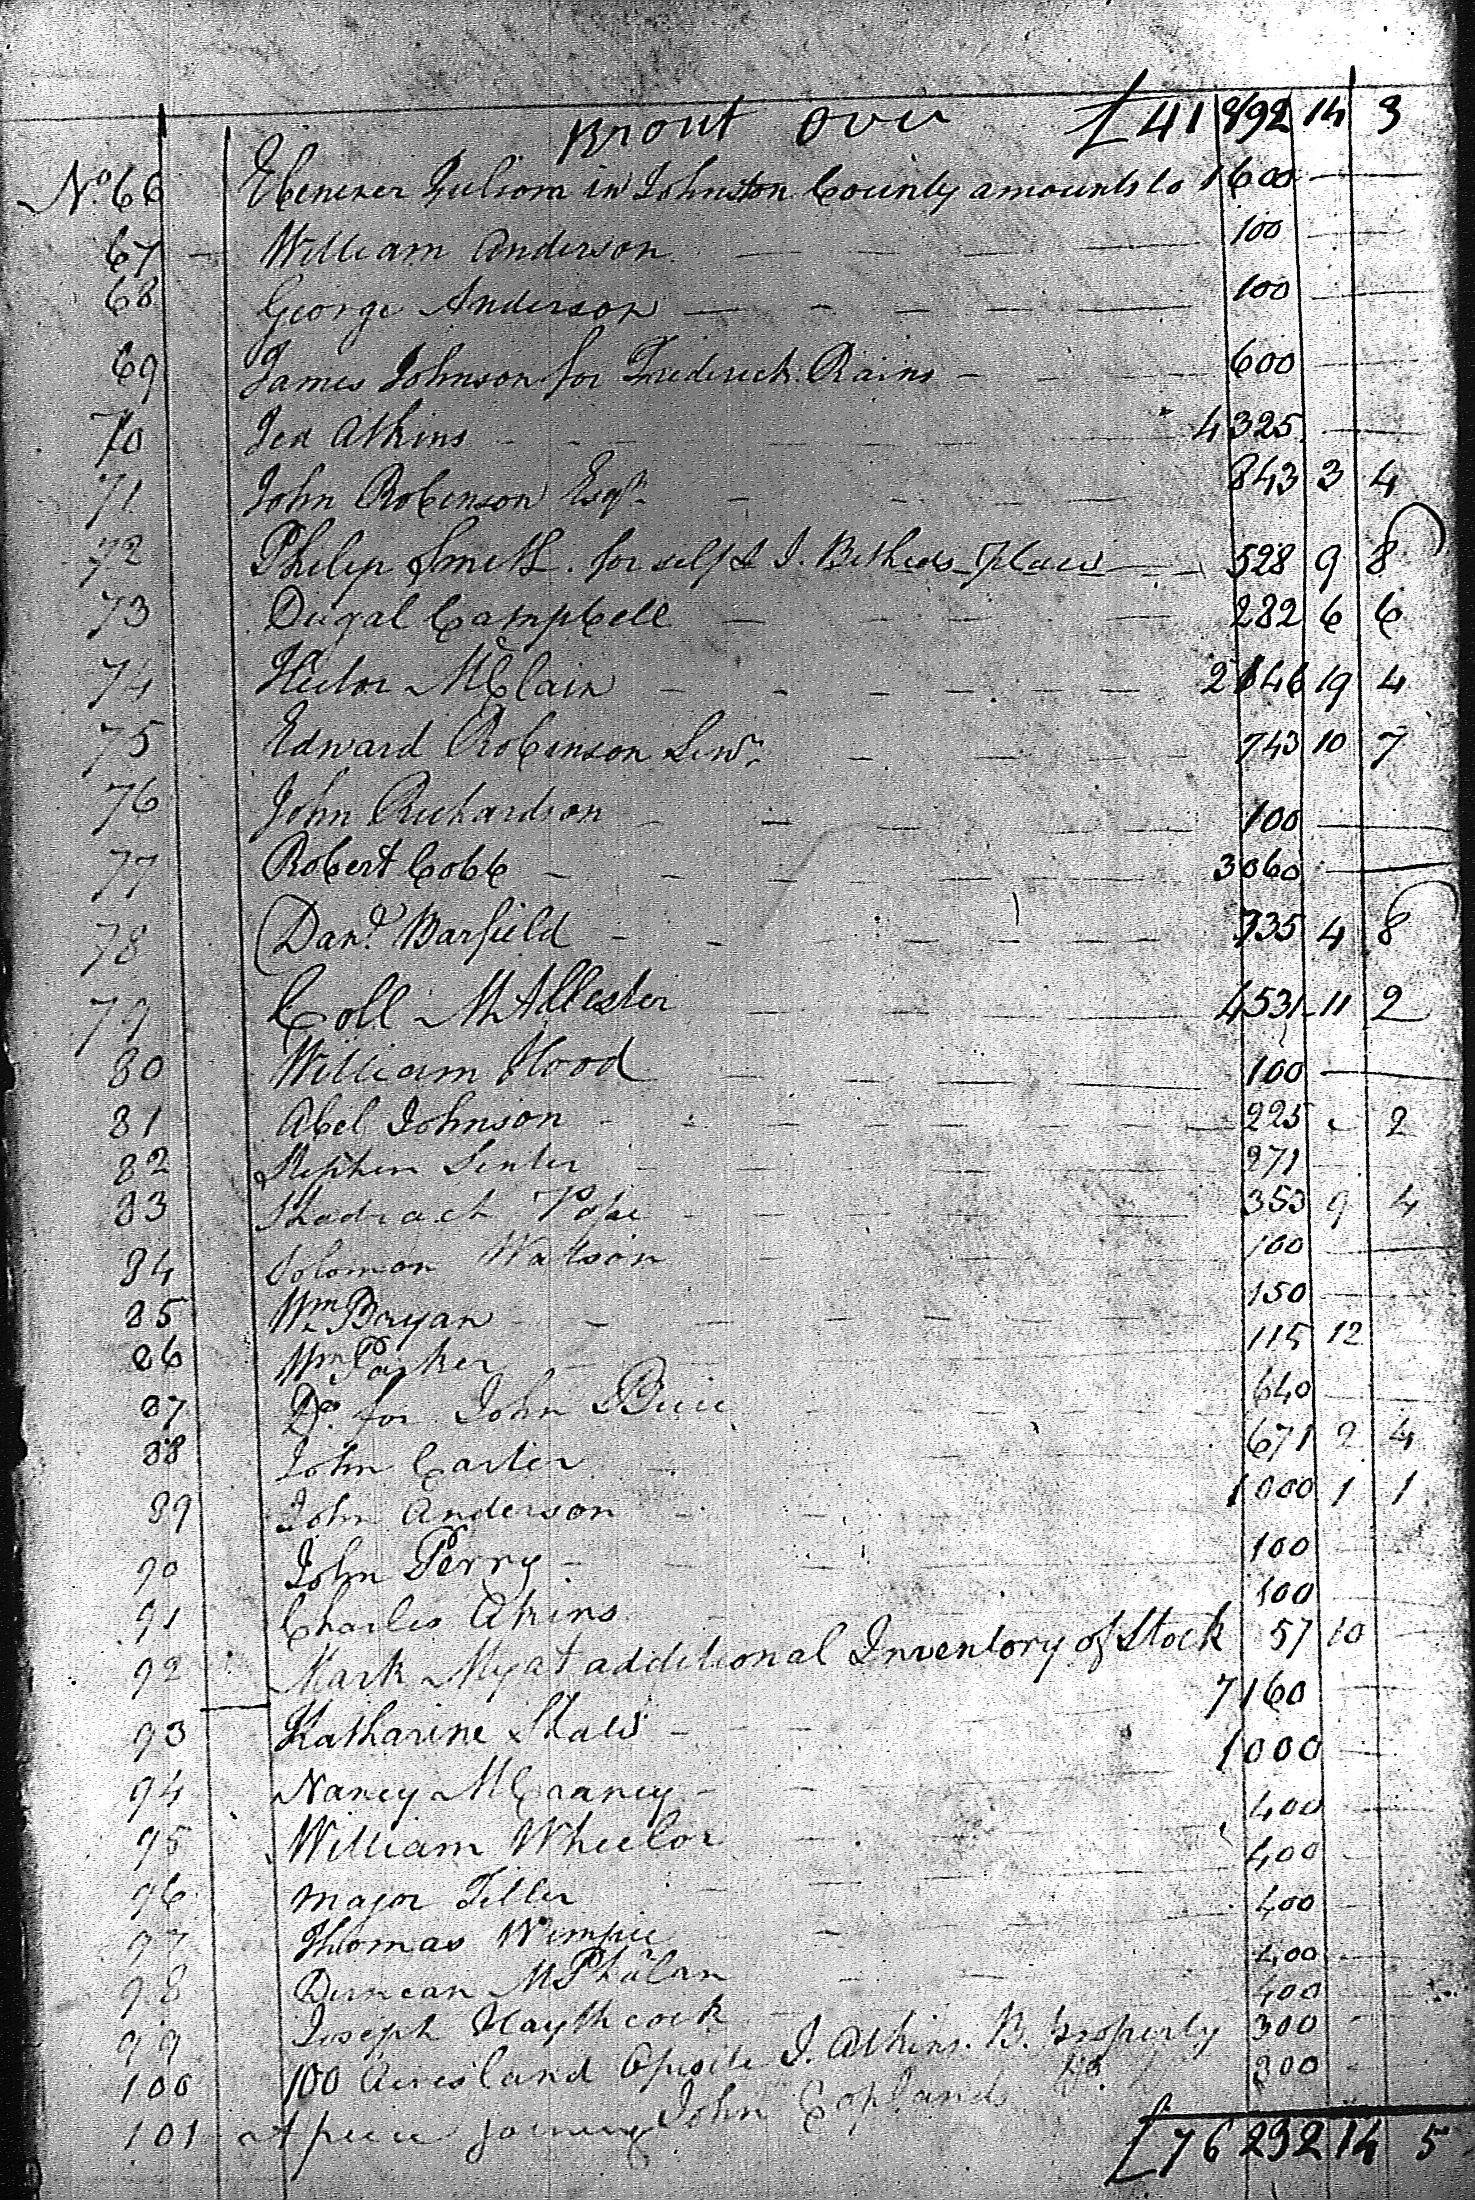 Brout Over £41892 14 3
No. 66 Ebenezer Fulsom in Johnston County amounts to 1600
67 William Anderson 100
68 George Anderson 100
69 James Johnson for Frederick Rains 600
70 Ica Atkins 4325
71 John Robinson Esqr. 843 3 4
72 Philip Smith for self & J. Bethees place 528 9 8
73 Dugal Campbell 282 6 6
74 Hector McClain 2146 19 4
75 Edward Robinson Senr. 743 10 7
76 John Richardson 100
77 Robert Cobb 3060
78 Danl. Barfield 735 4 8
79 Coll McAllester 4531 11 2
80 William Hood 100
81 Abel Johnson 225 - 2
82 Stephen Senter 271
83 Shadrach Pope 353 9 4
84 Solomon Watson 100
85 Wm. Bryan 150
86 Wm. Parker 115 12
87 Do. for John Buie 640
88 John Carter 671 2 4
89 John Anderson 1000 1 1
90 John Perry 100
91 Charles Akins 100
92 Mark Myat additional Inventory of Stock 57 10
93 Katharine Shaw 7160
94 Nancy McCraney 1000
95 William Wheelor 400
96 Major Tiller 400
97 Thomas Wimpie 400
98 Duncan McPhalan 400
99 Joseph Haythcock 400
100 100 Acres land Oposite J. Atkins. B. property 300
101 A piece joining John Coplands Do. 300
£76232 14 5